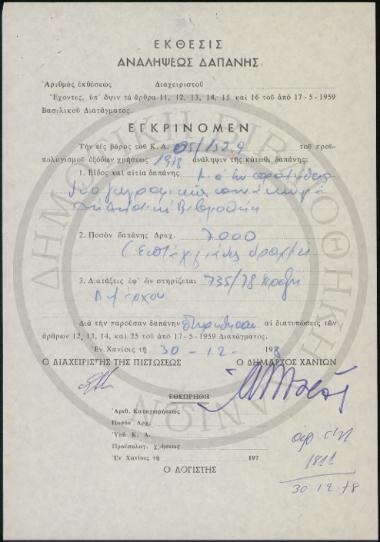 ΕΚΘΕΣΙΣ
ΑΝΑΛΗΨΕΩΣ ΔΑΠΑΝΗΣ
Ἀριθμὸς ἐκθέσεως Διαχειριστοῦ
Ἔχοντες, ὑπ' ὄψιν τὰ ἄρθρα 11, 12, 13, 14, 15 καὶ 16 τοῦ ἀπὸ 17-5-1959
Βασιλικοῦ Διατάγματος.
ΕΓΚΡΙΝΟΜΕΝ
Τὴν εἰς βάρος τοῦ Κ.Α. 05/152.9 τοῦ προϋ-
πολογισμοῦ ἐξόδων χρήσεως 1978 ἀνάληψιν τῆς κάτωθι δαπάνης:
1. Εἶδος καὶ αἰτία δαπάνης
2. Ποσὸν δαπάνης Δραχ. 7000
(Επτά χιλιάδες δραχμές
3. Διατάξεις ἐφ' ὧν στηρίζεται 735/78 πράξη
Δημάρχου
Διὰ τὴν παροῦσαν δαπάνην αἱ διατυπώσεις τῶν
ἄρθρων 12, 13, 14, καὶ 25 τοῦ ἀπὸ 17-5-1959 Διατάγματος.
Ἐν Χανίοις τῇ 30-12- 1978
Ο ΔΙΑΧΕΙΡΙΣΤΗΣ ΤΗΣ ΠΙΣΤΩΣΕΩΣ Ο ΔΗΜΑΡΧΟΣ ΧΑΝΙΩΝ
ΕΘΕΩΡΗΘΗ
Ἀριθ. Καταχωρήσεως
Ποσὸν Δρχ.
Ὑπὸ Κ. Α.
Προϋπολογ. χρήσεως
Ἐν Χανίοις τῇ 197
Ο ΛΟΓΙΣΤΗΣ
1811
30-12-78
ΔΗΜΟΤΙΚΗ ΒΙΒΛΙΟΘΗΚΗ ΧΑΝΙΩΝ